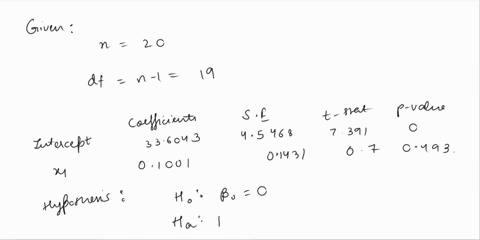 Given:
n = 20
df = n-1 = 19
Coefficients S.E t-stat p-value
Intercept 33.6043 4.5468 7.391 0
x1 0.1001 0.1431 0.7 0.493.
Hypothesis: H₀: β₀ = 0
Ha: 1